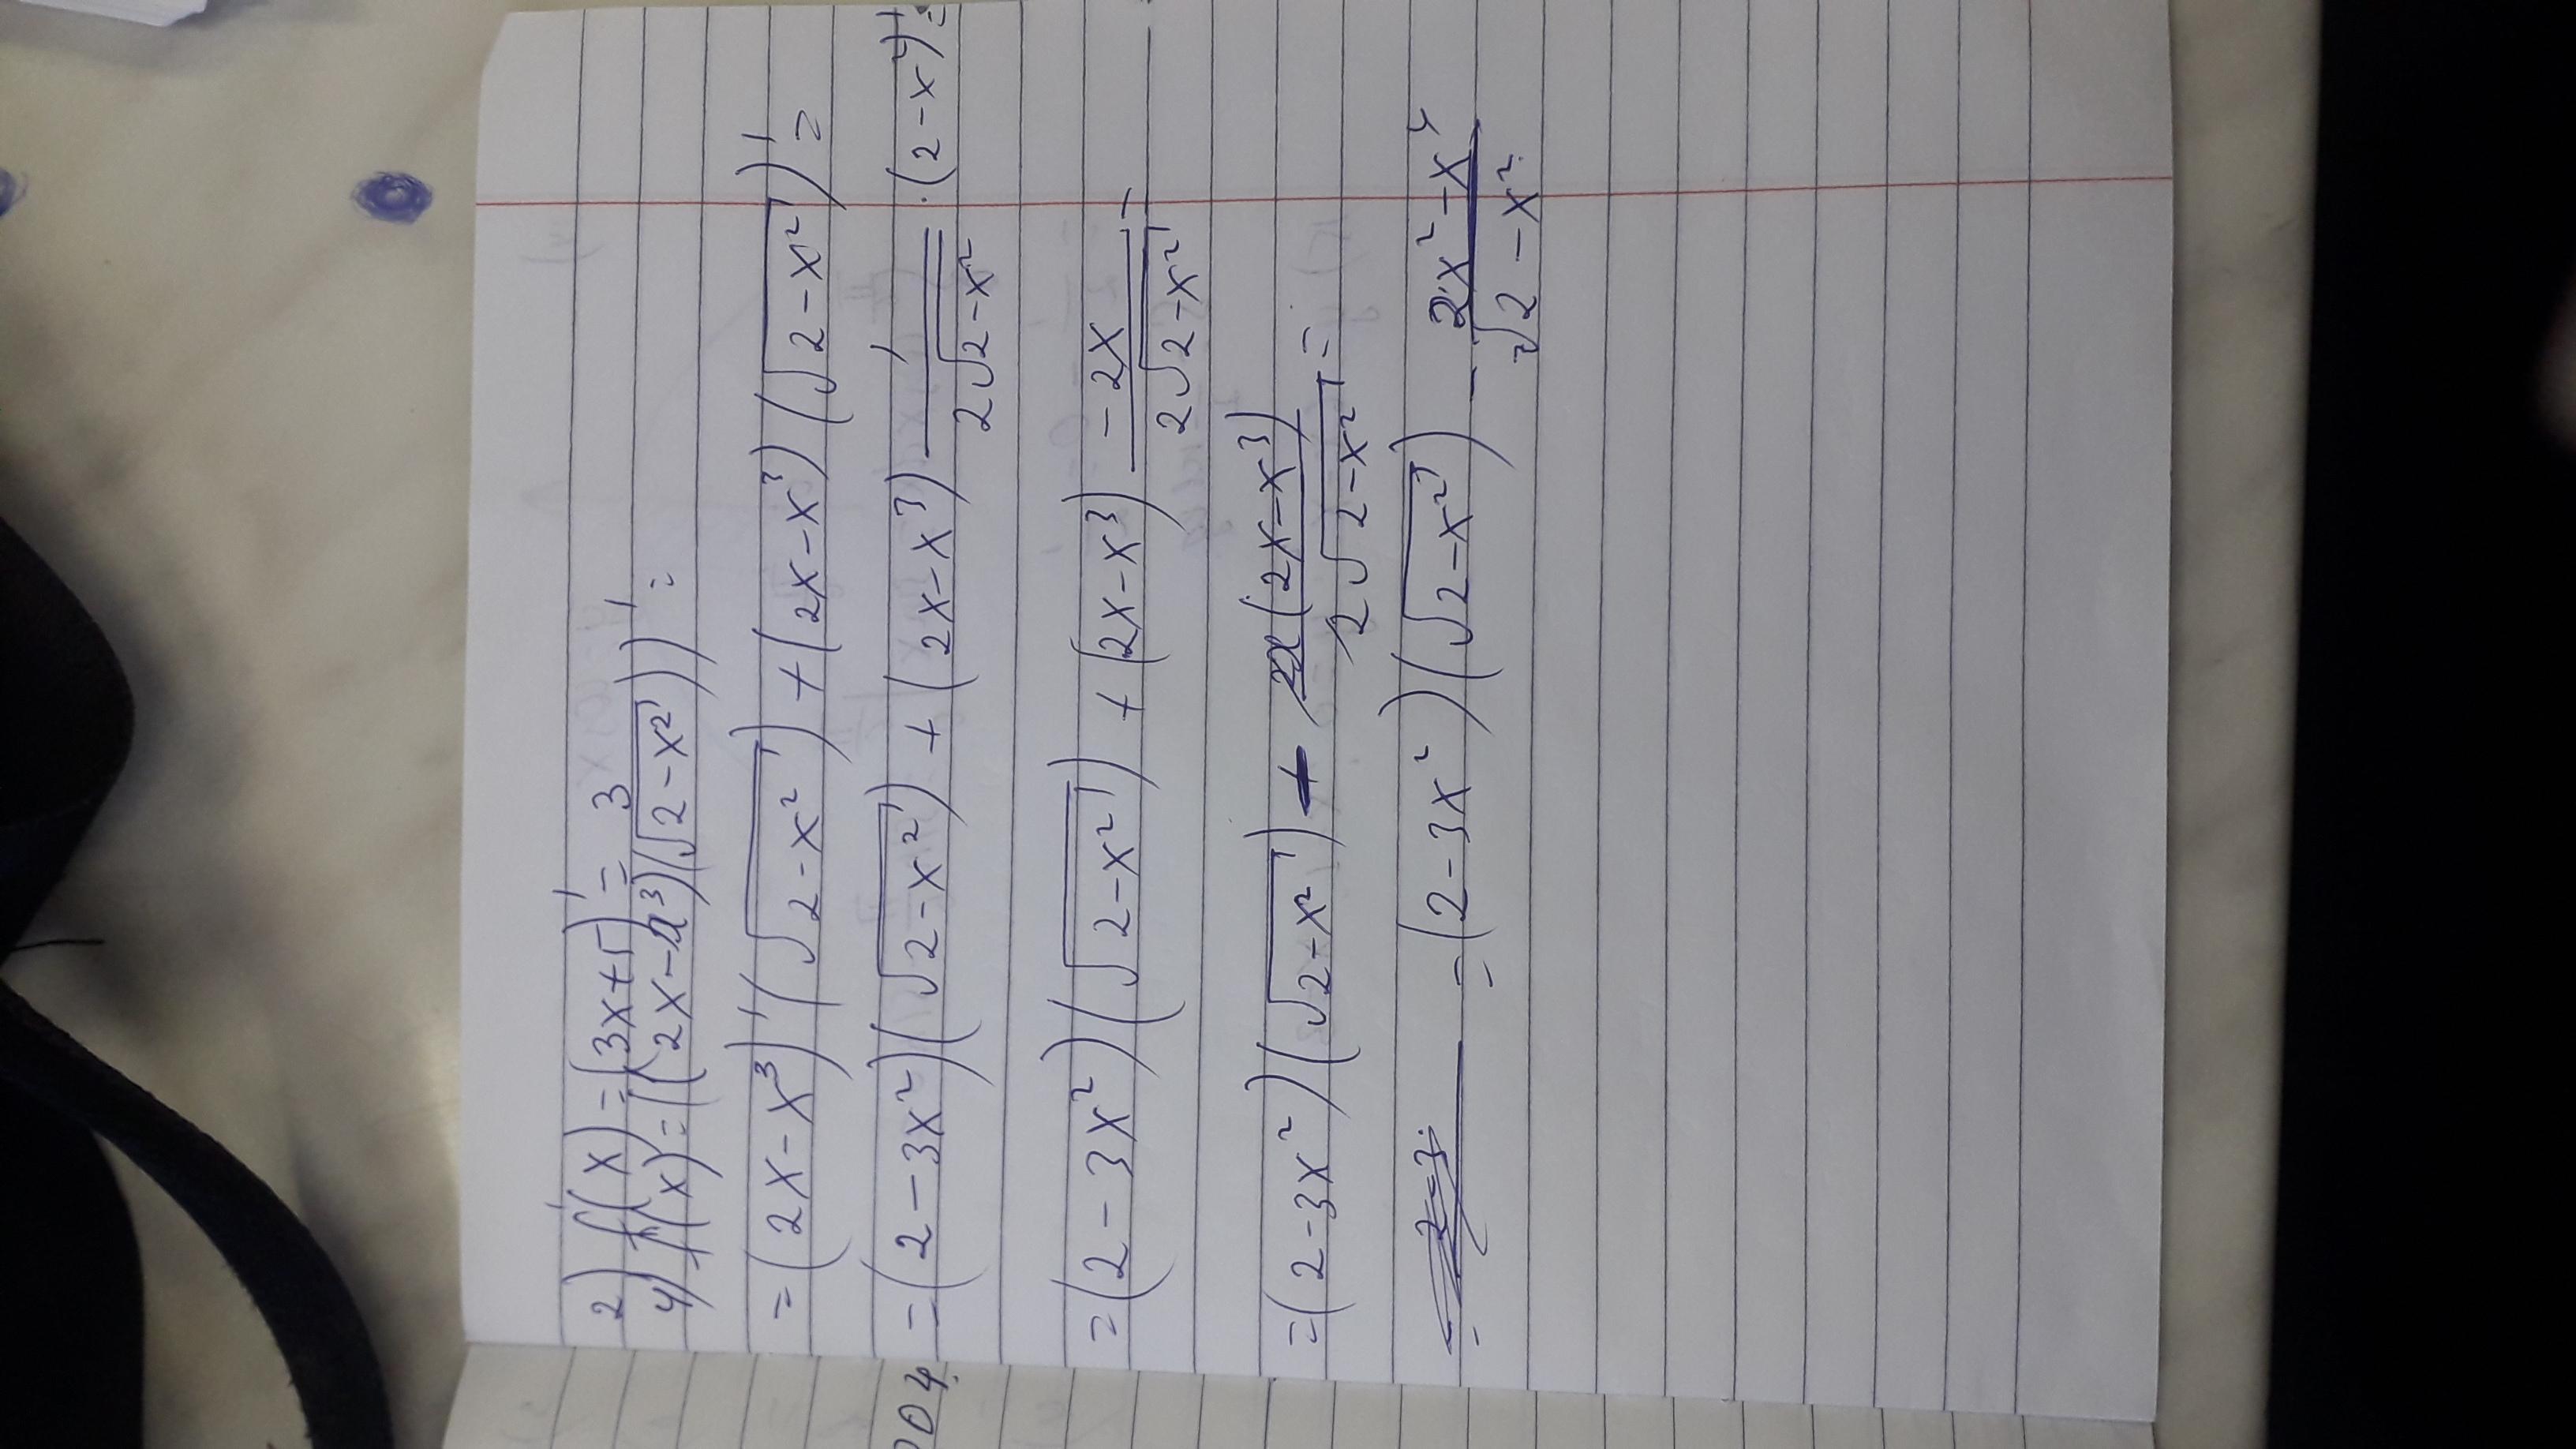 2) f'(x) = (3x+1)' = 3
4) f'(x) = ((2x-x³)(√(2-x²)))' =
= (2x-x³)'(√(2-x²)) + (2x-x³)(√(2-x²))' =
= (2-3x²)(√(2-x²)) + (2x-x³) 1/(2√(2-x²)) · (2-x²)' =
= (2-3x²)(√(2-x²)) + (2x-x³) (-2x)/(2√(2-x²)) =
= (2-3x²)(√(2-x²)) + 2x(2x-x³)/(2√(2-x²)) =
= = (2-3x²)(√(2-x²)) - (2x²-x⁴)/√(2-x²)
004.